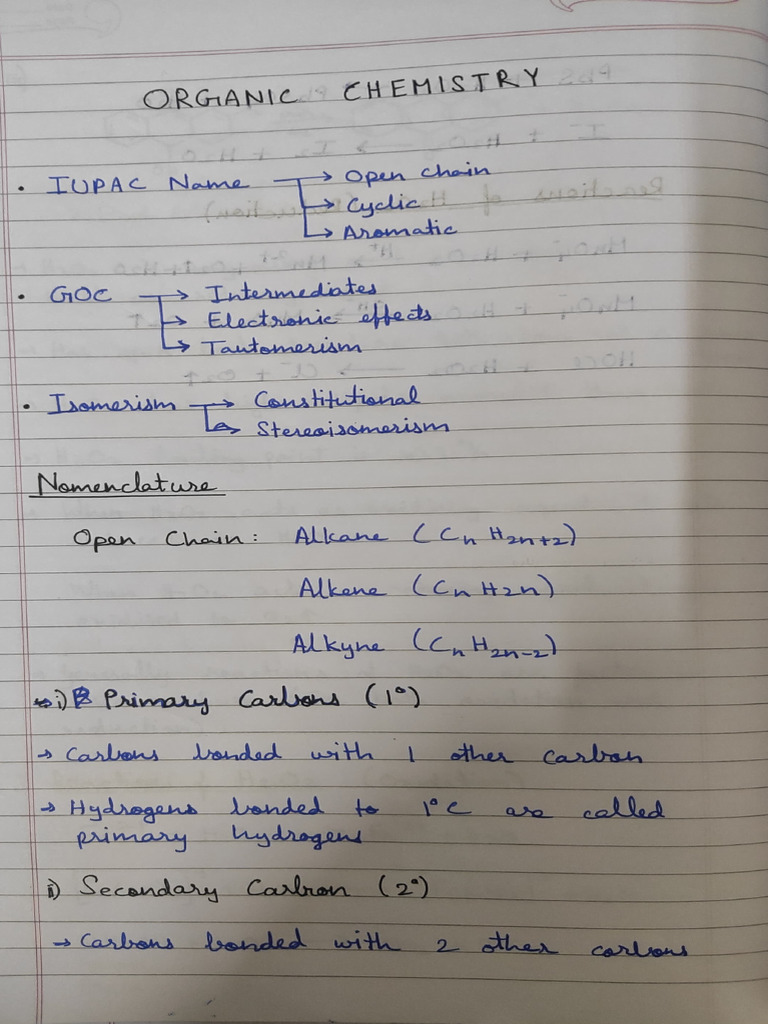 ORGANIC CHEMISTRY
• IUPAC Name → Open chain
→ Cyclic
→ Aromatic
• GOC → Intermediates
→ Electronic effects
→ Tautomerism
• Isomerism → Constitutional
→ Stereoisomerism
Nomenclature
Open Chain: Alkane (CₙH₂ₙ₊₂)
Alkene (CₙH₂ₙ)
Alkyne (CₙH₂ₙ₋₂)
i) Primary Carbons (1°)
→ Carbons bonded with 1 other carbon
→ Hydrogens bonded to 1°C are called
primary hydrogens
ii) Secondary Carbon (2°)
→ Carbons bonded with 2 other carbons